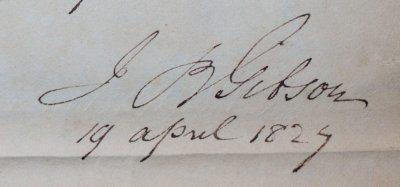 J B Gibson
19 april 1827